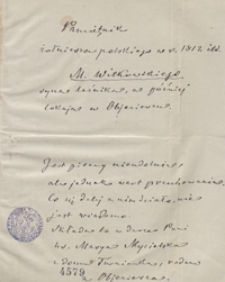 Pamiętnik
żołnierza polskiego w r. 1812 itd.
M. Witkowskiego
syna leśnika, a później
lokaja w Objezierzu.
Jest pisany nieudolnie
ale jednak wart przechowania.
co się dalej z nim działo, nie
jest wiadomo.
Składa tu w darze Pani
hr. Marya Mycielska
z domu Turnianka, rodem
z Objezierza.
4579